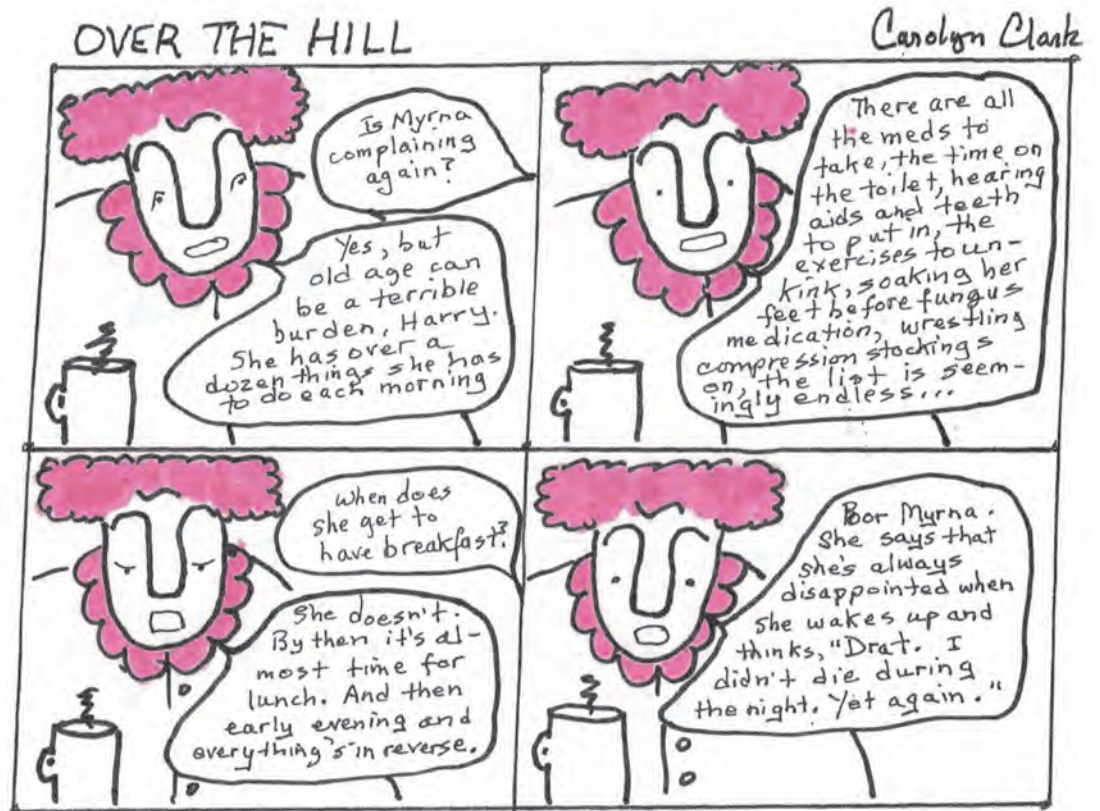 OVER THE HILL
Carolyn Clark
Is Myrna
complaining
again?
Yes, but
old age can
be a terrible
burden, Harry.
She has over a
dozen things she has
to do each morning
There are all
the meds to
take, the time on
the toilet, hearing
aids and teeth
to put in, the
exercises to un-
kink, soaking her
feet before fungus
medication, wrestling
compression stockings
on, the list is seem-
ingly endless...
When does
she get to
have breakfast?
She doesn't.
By then it's al-
most time for
lunch. And then
early evening and
everything's in reverse.
Poor Myrna.
She says that
she's always
disappointed when
she wakes up and
thinks, "Drat. I
didn't die during
the night. Yet again."